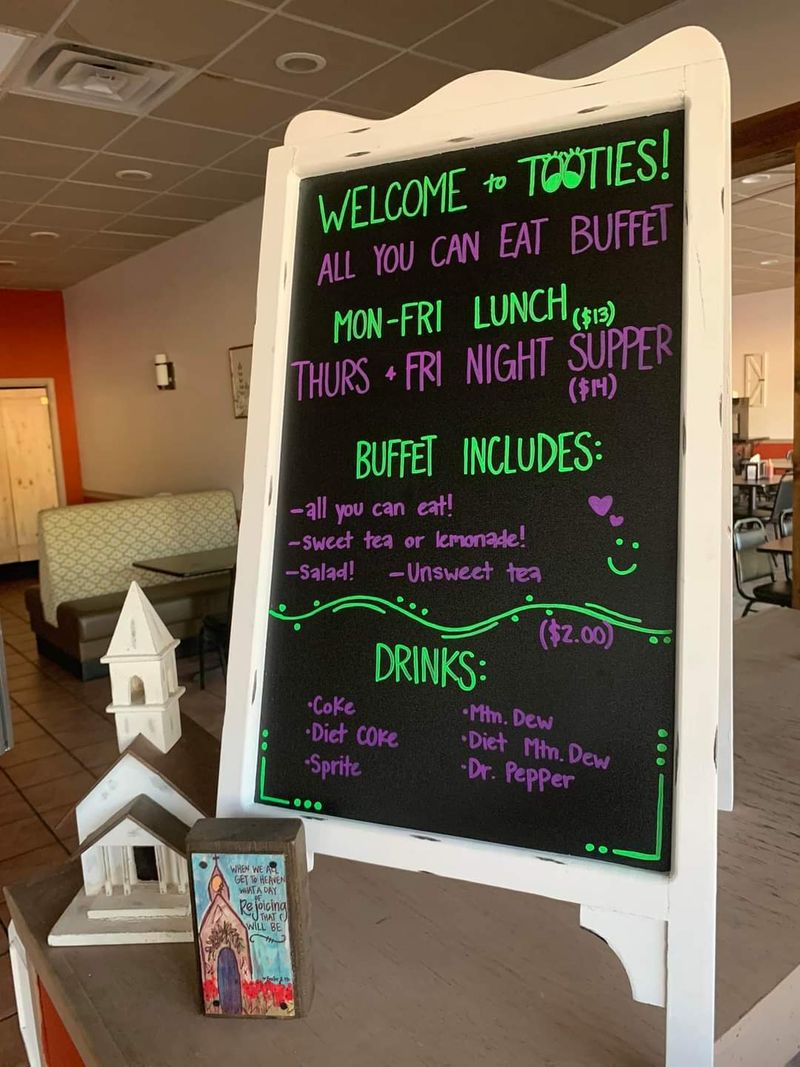 WELCOME to TOOTIES!
ALL YOU CAN EAT BUFFET
MON-FRI LUNCH ($13)
THURS & FRI NIGHT SUPPER
($14)
BUFFET INCLUDES:
-all you can eat!
-sweet tea or lemonade!
-Salad! -Unsweet tea
($2.00)
DRINKS:
•Coke
•Diet Coke
•Sprite
•Mtn. Dew
•Diet Mtn. Dew
•Dr. Pepper
WHEN WE ALL
GET TO HEAVEN
WHAT A DAY
OF
Rejoicing
THAT
WILL BE